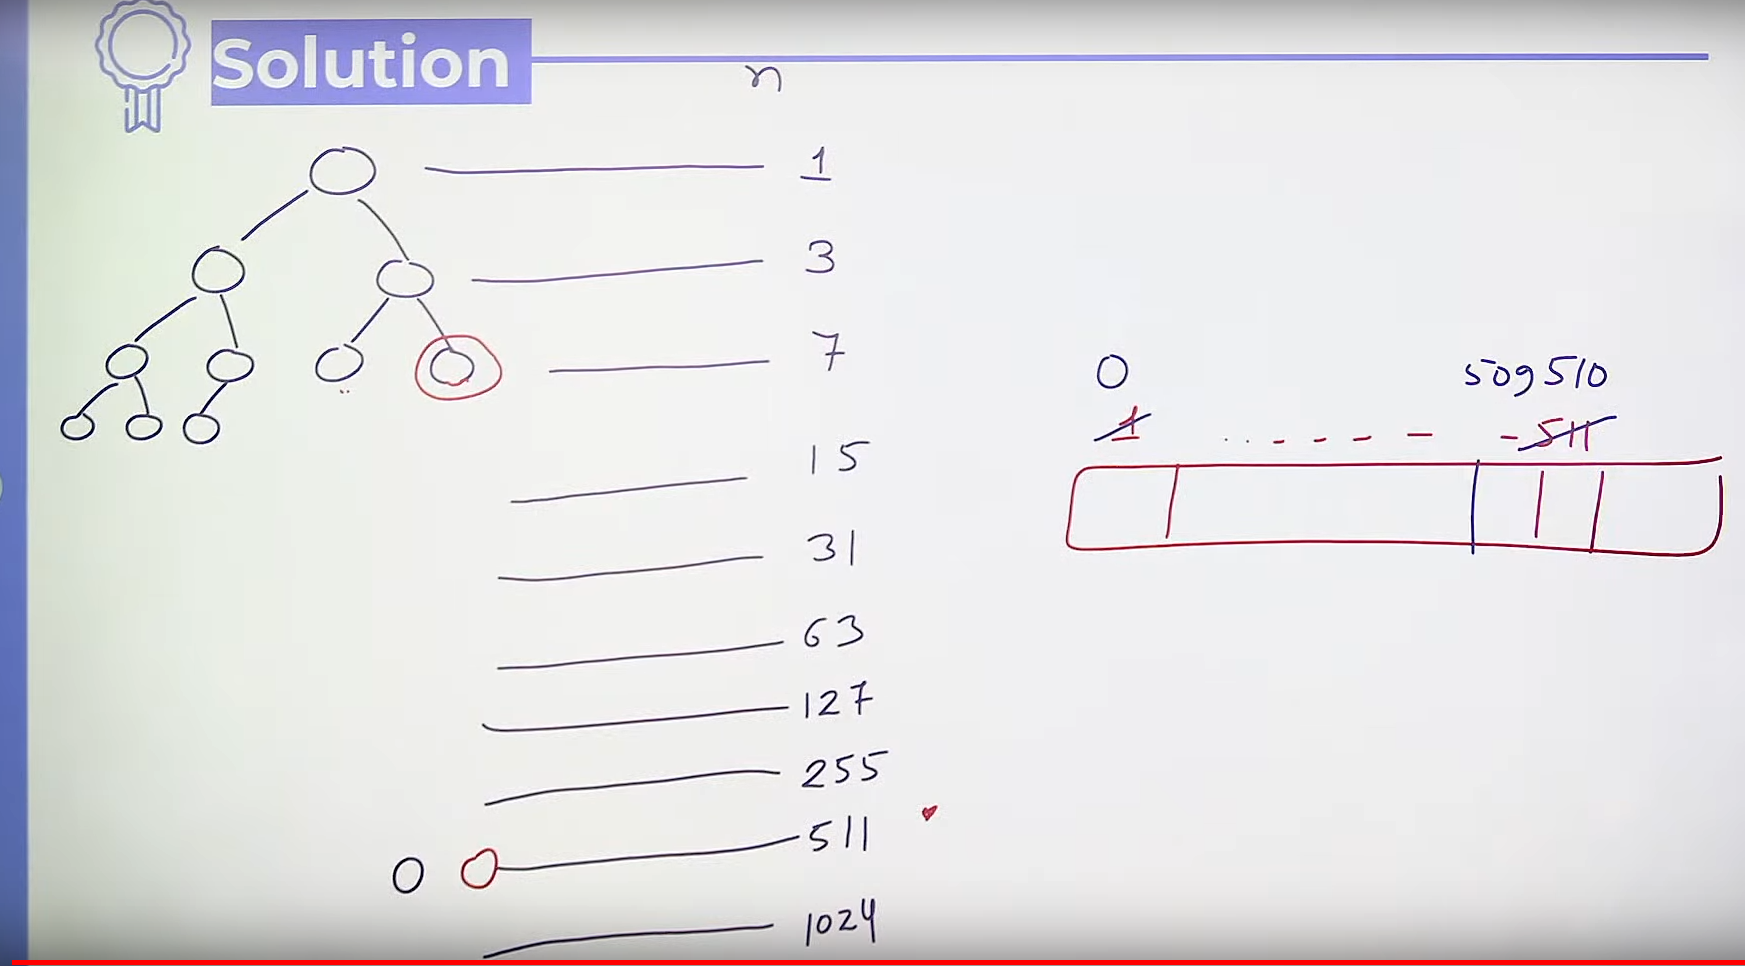 Solution
n
1
3
7
15
31
63
127
255
511
1024
0 509 510
1 511